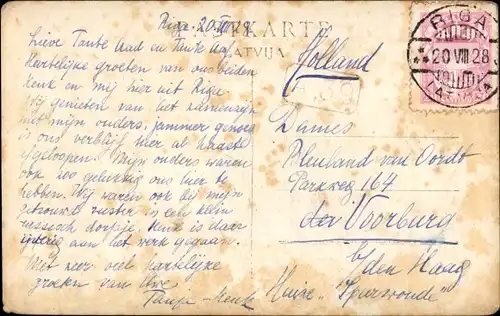 Riga. 20 VIII '28
PASTKARTE
LATVIJA
RIGA
20 VIII 28
Lieve Tante Aad en Tante
Hartelijke groeten van ons beiden
Henk en mij hier uit Riga
Wij genieten van het samenzijn
met mijn ouders, jammer genoeg
is ons verblijf hier al haast
afgeloopen. Mijn ouders waren
ook zoo gelukkig ons hier te
hebben. Wij waren ook bij mijn
getrouwde zuster in een klein
russisch dorpje. Henk is daar
ijverig aan het werk gegaan.
Met zeer veel hartelijke
groeten van Uwe
Tanja - Henk
Holland
Dames
Bleuland van Oordt
Parkweg 164
den Voorburg
b/den Haag
Huize "